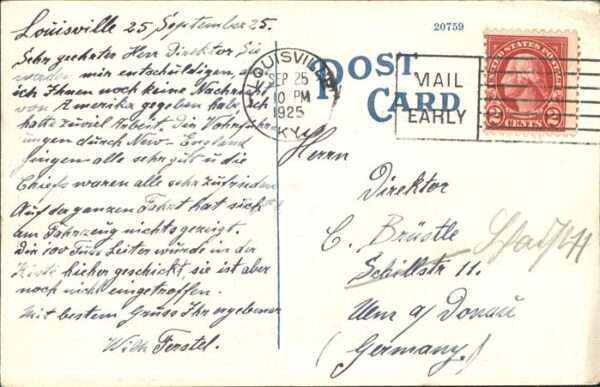 Louisville 25 September 25.
Sehr geehrter Herr Direktor Sie
werden mir entschuldigen, d
ich Ihnen noch keine Nachricht
von Amerika gegeben habe ich
hatte zuviel Arbeit. Die Vorführ
ungen durch New-England
gingen alle sehr gut u die
Chiefs waren alle sehr zufrieden
Auf der ganzen Fahrt hat sich
am Fahrzeug nichts gezeigt.
Die 100 Fuss Leiter wurde in der
hieher geschickt sie ist aber
noch nicht eingetroffen.
Mit bestem Gruss Ihr ergebener
Wilh Ferstel.
20759
POST CARD
LOUISVILLE
SEP 25
10 PM
1925
KY.
MAIL
EARLY
UNITED STATES POSTAGE
2 CENTS 2
Herrn
Direktor
C. Brüstle
Schillstr 11.
Ulm a/ Donau
(Germany.)